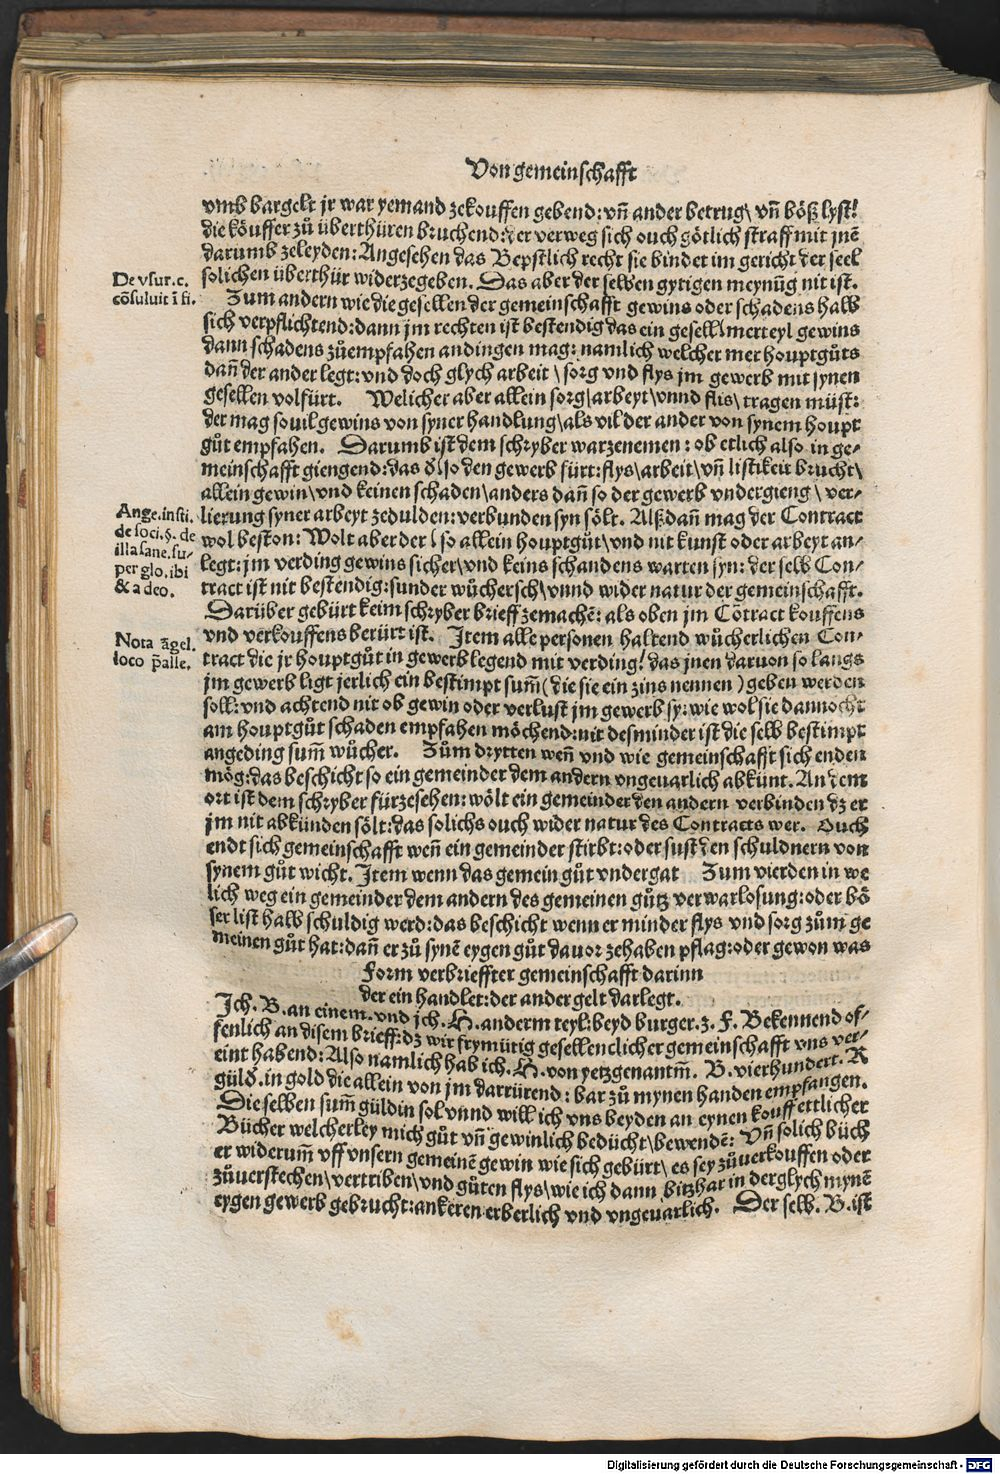 Von gemeinschafft
vmb bargelt jr war yemand zekouffen gebend: vñ ander betrug\ vñ bößlyst/
die köuffer zů überthüren bruchend: der verweg sich ouch götlich straff mit jnē
darumb zeleyden: Angesehen das Bepstlich recht sie bindet im gericht der seel
solichen überthür widerzegeben. Das aber der selben gytigen meynūg nit ist.
De vsur. c.
cōsuluit ī fi.
Zum andern wie die gesellen der gemeinschafft gewins oder schadens halb
sich verpflichtend: dann jm rechten ist bestendig das ein gesell/ merteyl gewins
dann schadens zůempfahen andingen mag: namlich welcher mer houptgůts
dañ der ander legt: vnd doch glych arbeit \ sorg vnd flys jm gewerb mit synen
gesellen volfürt. Welicher aber allein sorg\ arbeyt\ vnnd flis\ tragen müst:
der mag souil gewins von syner handlung\ als vil der ander von synem houpt
gůt empfahen. Darumb ist dem schryber warzenemen: ob etlich also in ge-
meinschafft giengend: das d̄\ so den gewerb fürt: flys\ arbeit\ vñ listikeit brucht\
allein gewin\ vnd keinen schaden\ anders dañ so der gewerb vndergieng \ ver-
lierung syner arbeyt zedulden: verbunden syn sölt. Alßdañ mag der Contract
wol beston: Wolt aber der \ so allein houptgůt\ vnd nit kunst oder arbeyt an-
legt: jm verding gewins sicher\ vnd keins schandens warten syn: der selb Con-
tract ist nit bestendig: sunder wůchersch\ vnnd wider natur der gemeinschafft.
Ange. insti.
de soci. §. de
illa sane. su-
per glo. ibi
& adeo.
Darüber gebürt keim schryber brieff zemachē: als oben jm Cōtract kouffens
vnd verkouffens berürt ist. Item alle personen haltend wůcherlichen Con-
tract die jr houptgůt in gewerb legend mit verding/ das jnen daruon so langs
jm gewerb ligt jerlich ein bestimpt sum̄ (die sie ein zins nennen) geben werden
soll: vnd achtend nit ob gewin oder verlust jm gewerb sy: wie wol sie dannocht
am houptgůt schaden empfahen möchend: nit desminder ist die selb bestimpt
angeding sum̄ wůcher. Zům drytten weñ vnd wie gemeinschafft sich enden
Nota āgel.
loco p̄alle.
mög: das beschicht so ein gemeinder dem andern vngeuarlich abkünt. An dem
ort ist dem schryber fürzesehen: wölt ein gemeinder den andern verbinden dz er
jm nit abkünden sölt: das solichs ouch wider natur des Contracts wer. Ouch
endt sich gemeinschafft weñ ein gemeinder stirbt: oder sust den schuldnern von
synem gůt wicht. Item wenn das gemein gůt vndergat Zum vierden in we
lich weg ein gemeinder dem andern des gemeinen gůtz verwarlosung: oder bö
ser list halb schuldig werd: das beschicht wenn er minder flys vnd sorg zům ge
meinen gůt hat: dañ er zů synē eygen gůt dauor zehaben pflag: oder gewon was
Form verbrieffter gemeinschafft darinn
der ein handlet: der ander gelt darlegt.
Ich. B. an einem. vnd jch. H. anderm teyl: beyd burger. z. F. Bekennend of-
fenlich an disem brieff: dz wir frymütig gesellen clicher gemeinschafft vns ver-
eint habend: Also namlich hab ich. H. von yetzgenantm̄. B. vierhundert. R
güld̄. in gold die allein von jm darrürend: bar zů mynen handen empfangen.
Die selben sum̄ güldin sol vnnd will ich vns beyden an eynen kouff ettlicher
Bücher welcherley mich gůt vñ gewinlich bedücht\ bewendē: Vñ solich büch
er widerum̄ vff vnsern gemeinē gewin wie sich gebürt\ es sey zůuerkouffen oder
zůuerstechen\ vertriben\ vnd gůten flys\ wie ich dann bitzhar in derglych mynē
eygen gewerb gebrucht: ankeren erberlich vnd vngeuarlich. Der selb. B. ist
Digitalisierung gefördert durch die Deutsche Forschungsgemeinschaft - DFG